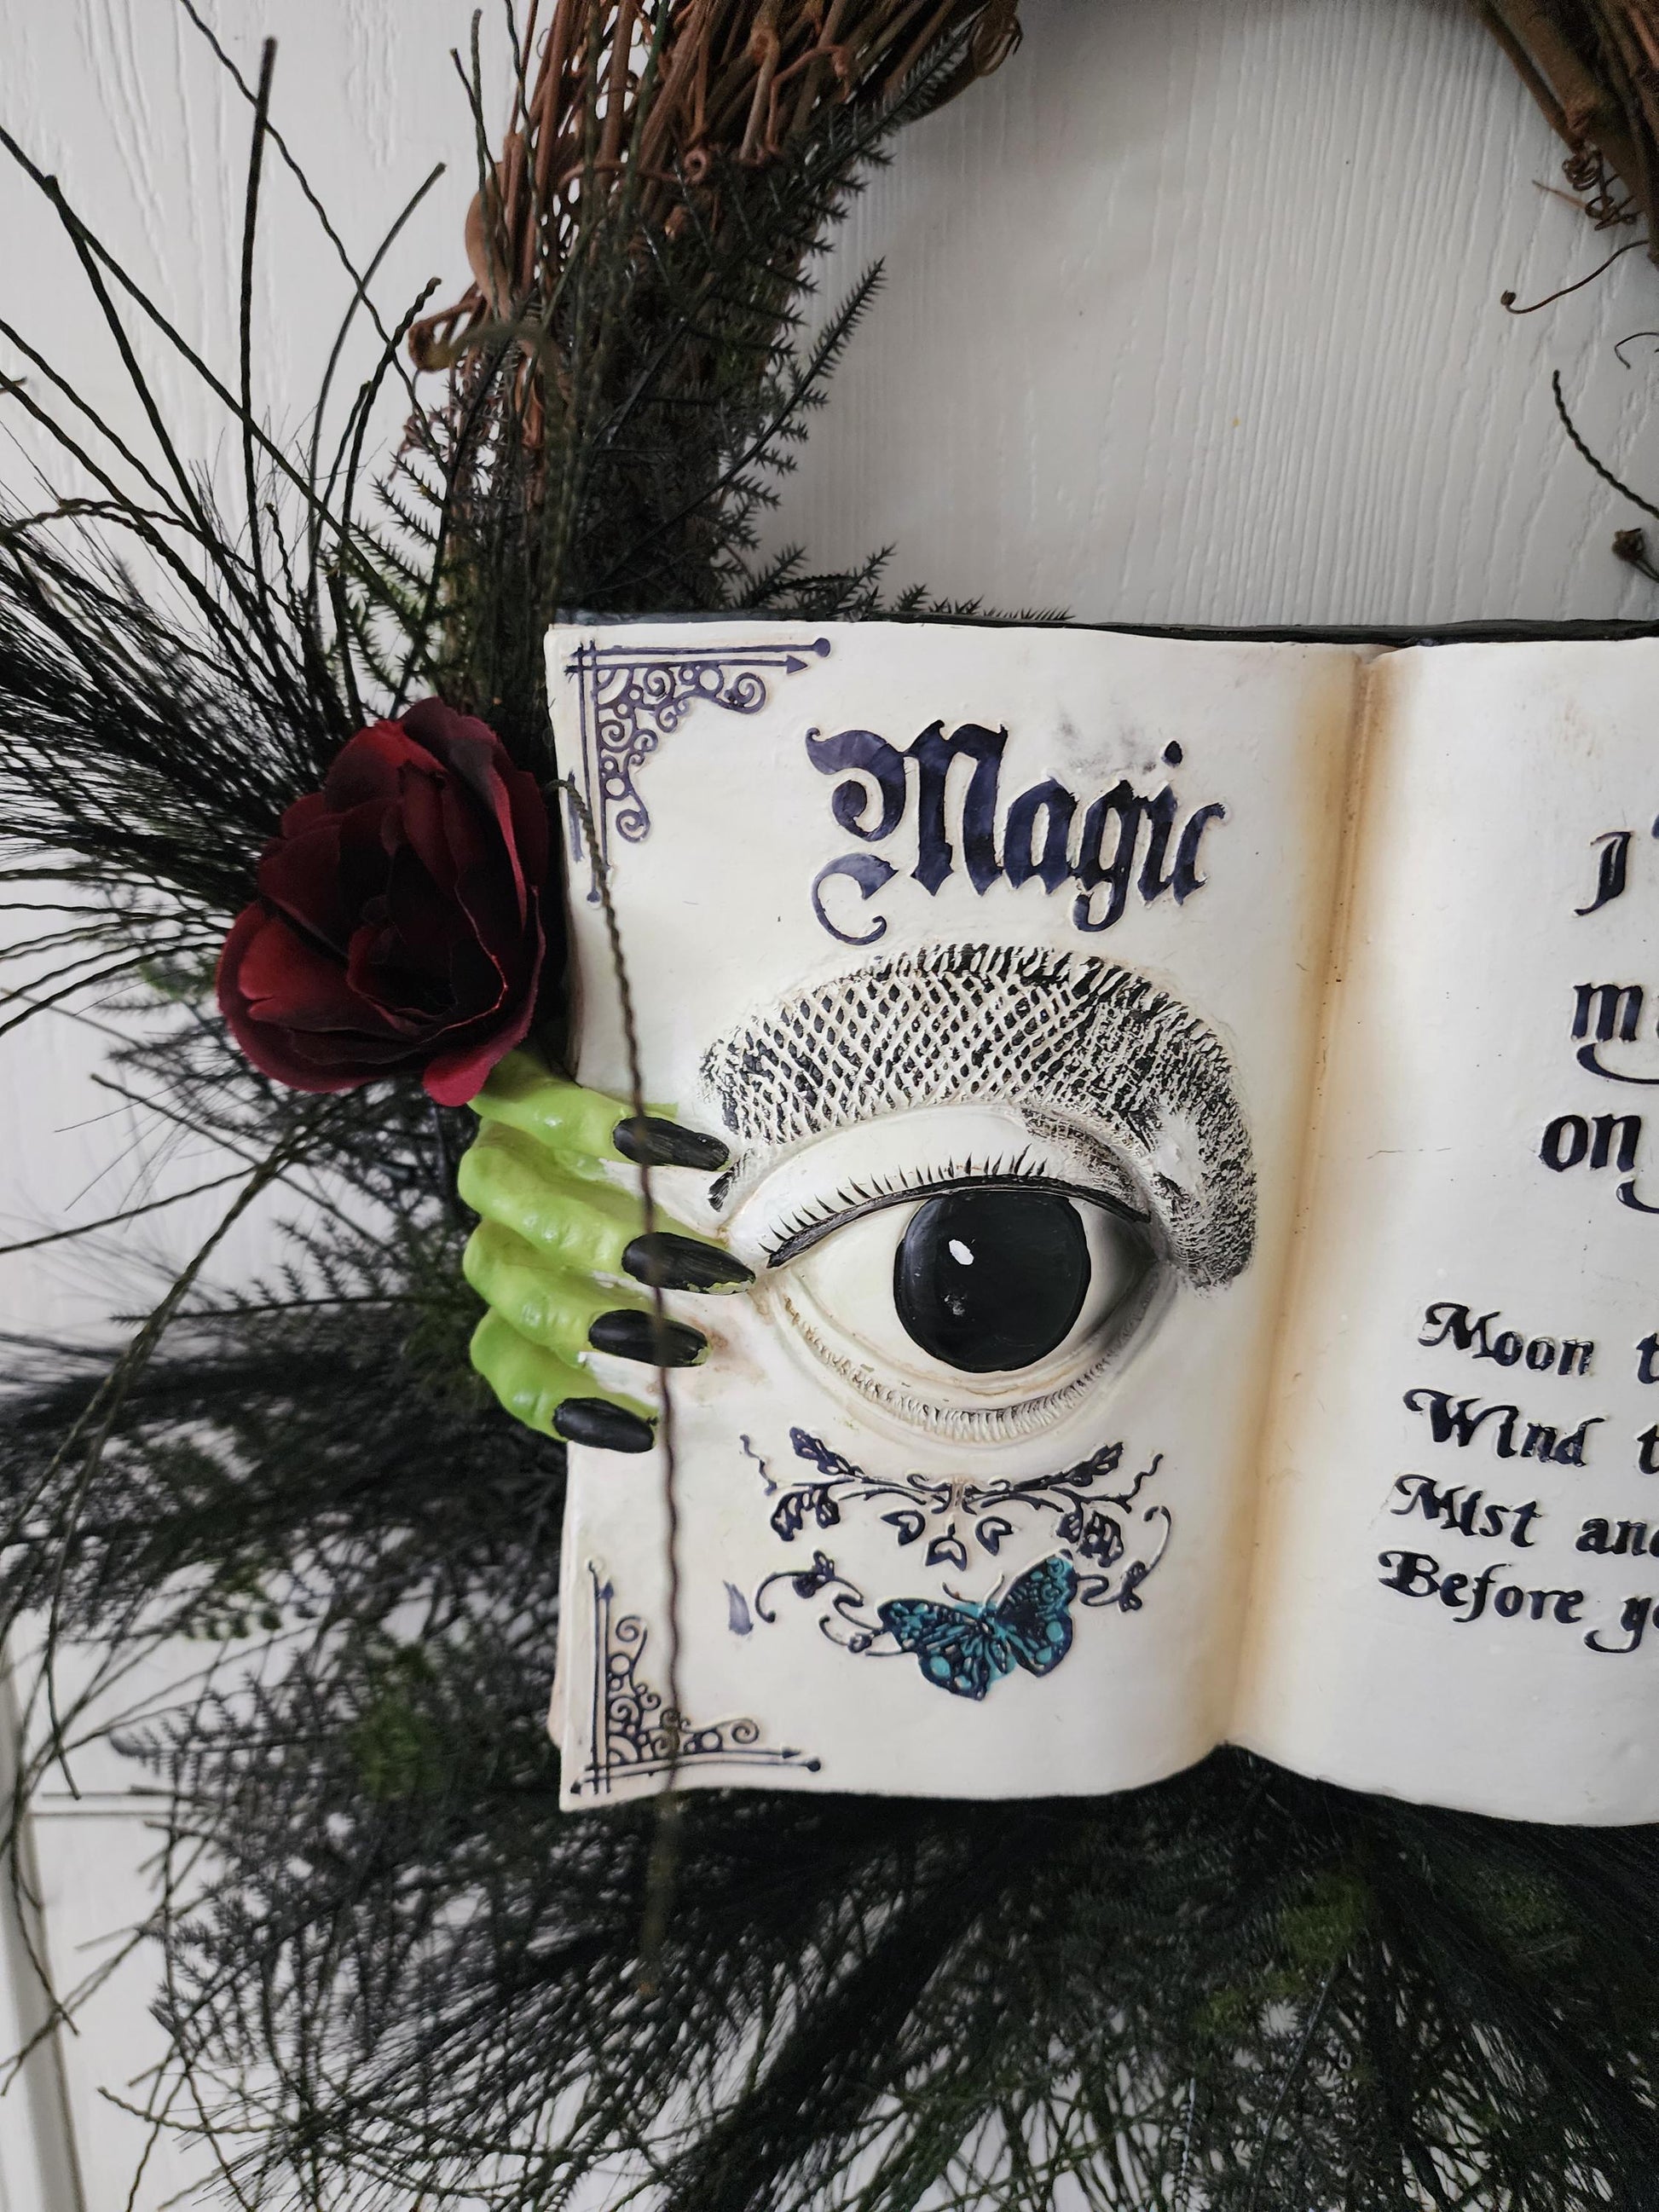 Magic
I
on
Moon
Wind
Mist and
Before